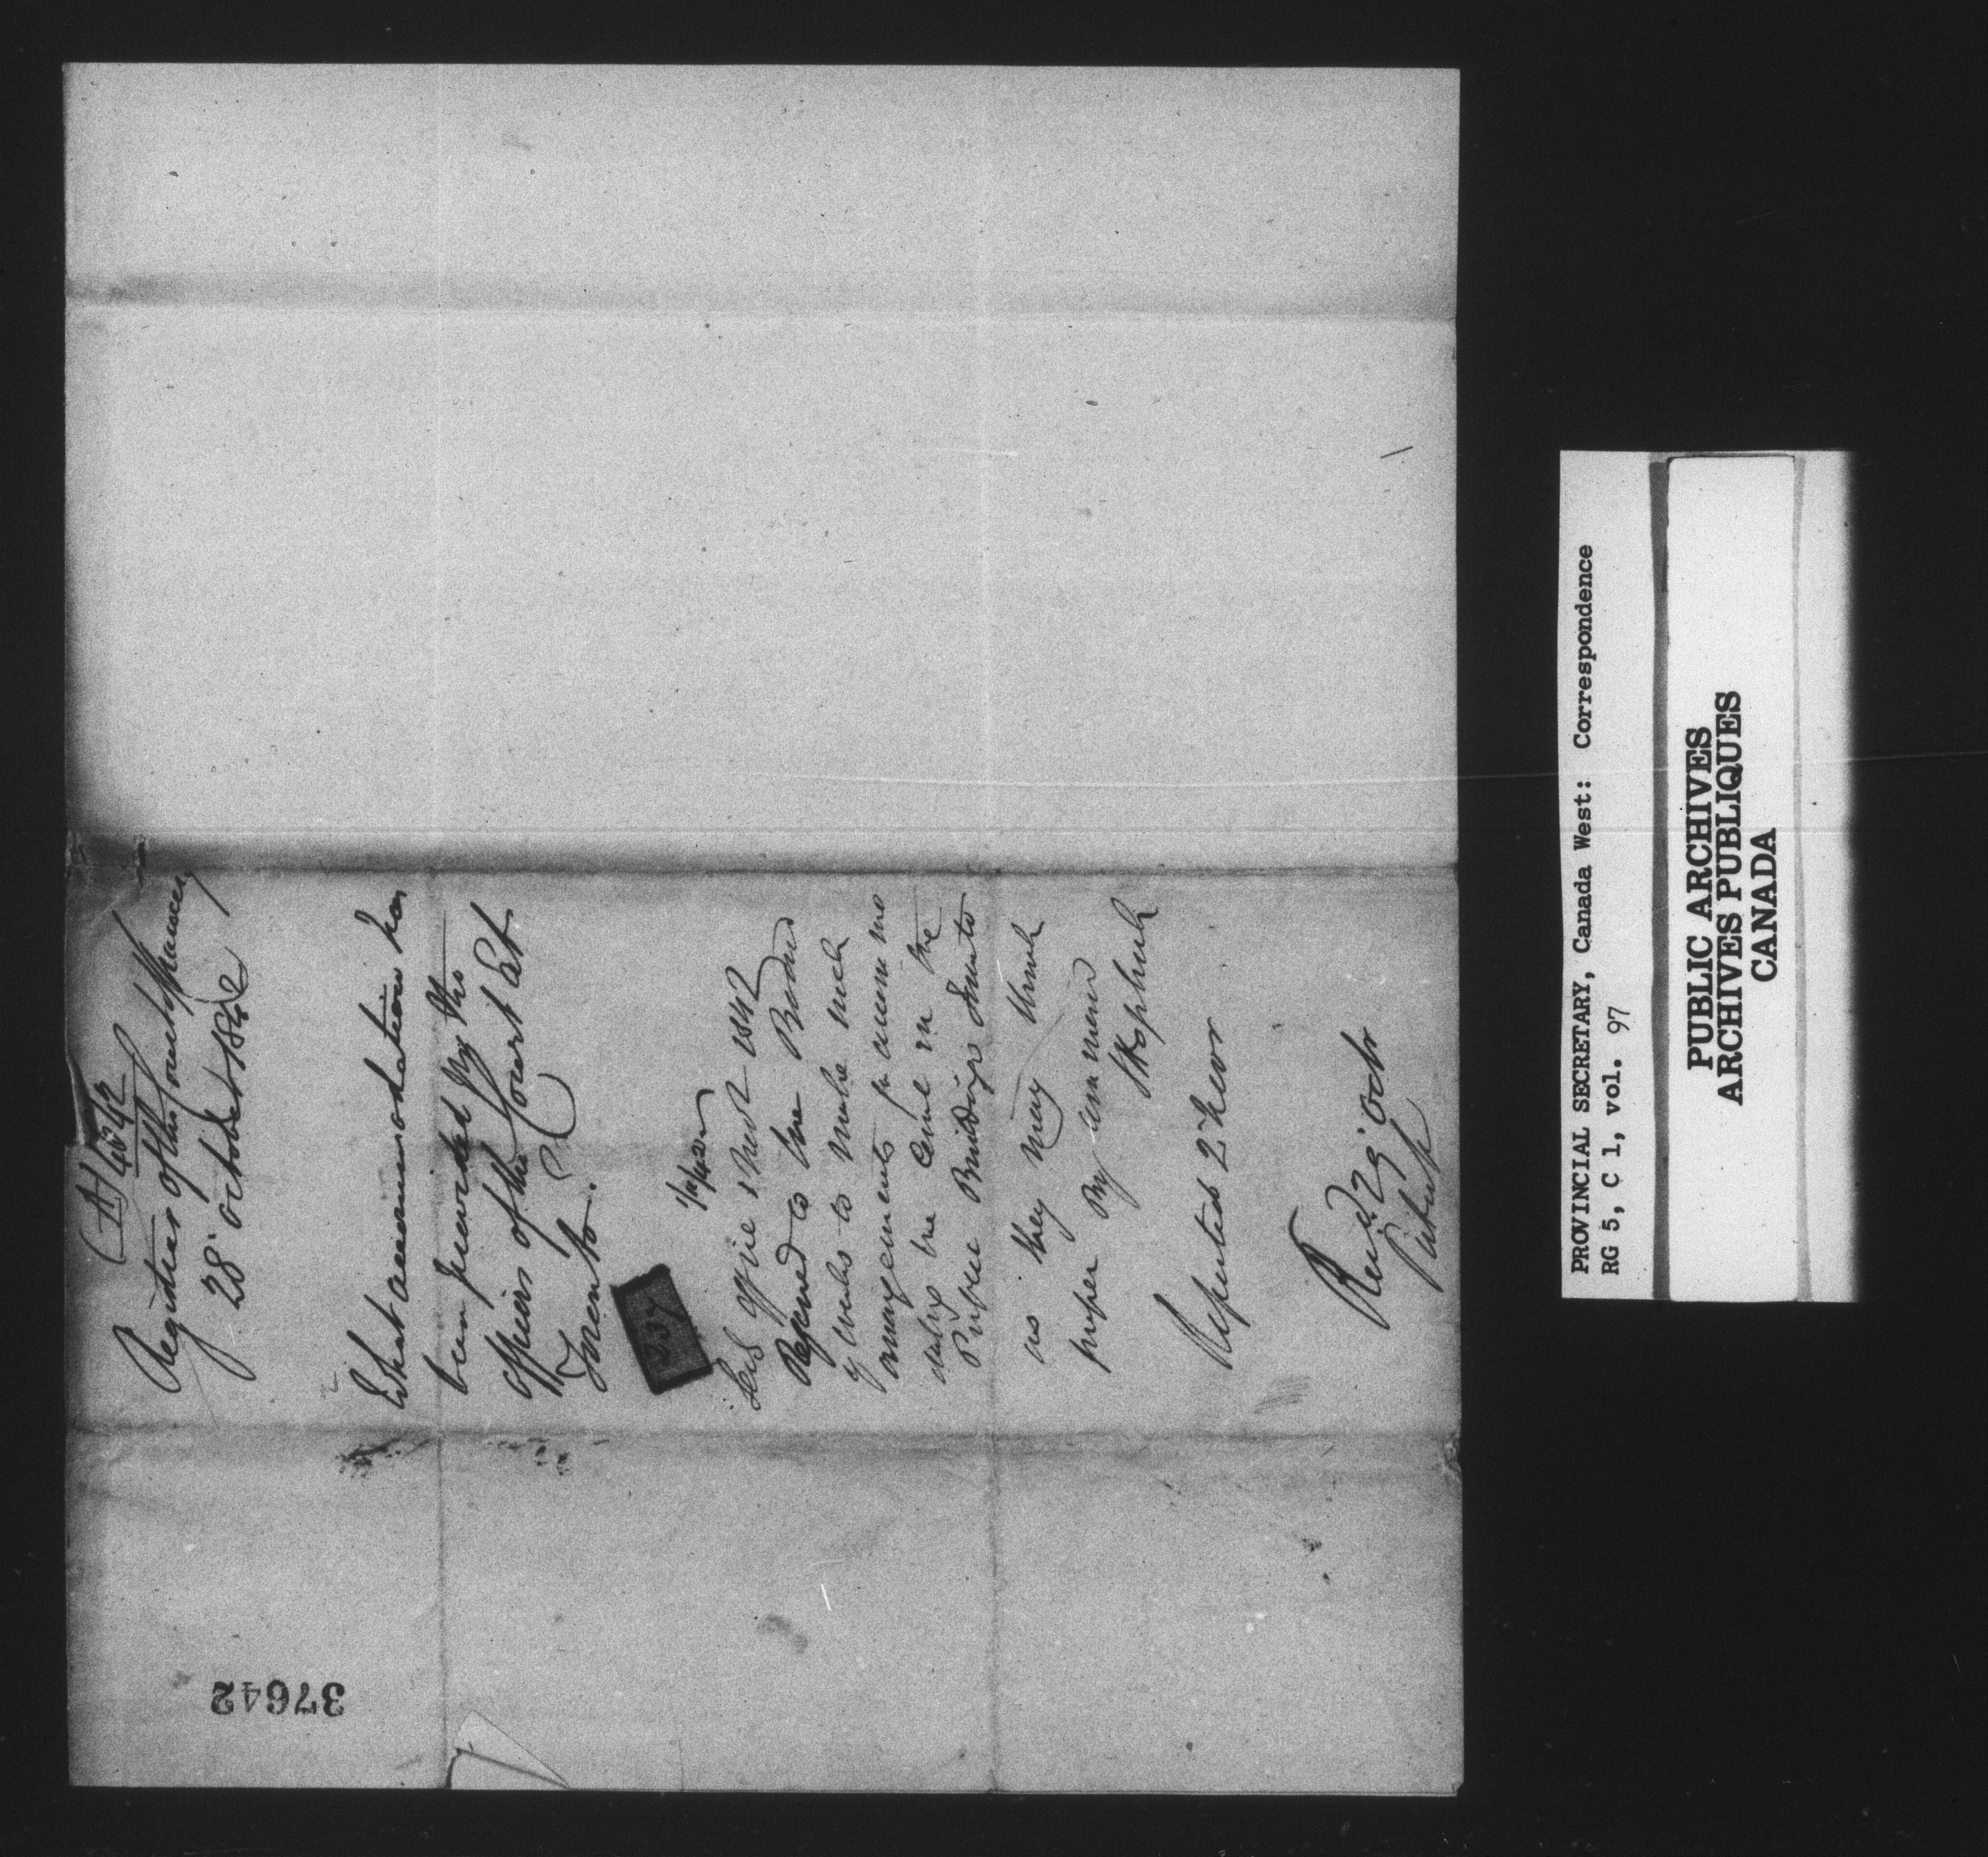 (A) 4342
Registrar of the Court of Chancery
28 October 1842
What accommodation has
been provided for the
officers of the Court at
Toronto.
237
Secs Office 1 Novr 1842
Referred to the Board
of Works to make such
arrangements to accommo
dating the Court in the
Public Buildings Toronto
as they may think
proper By command
Reported 2 Novr
Recd 29 Octr
37642
PROVINCIAL SECRETARY, Canada West: Correspondence
RG 5, C 1, vol. 97
PUBLIC ARCHIVES
ARCHIVES PUBLIQUES
CANADA